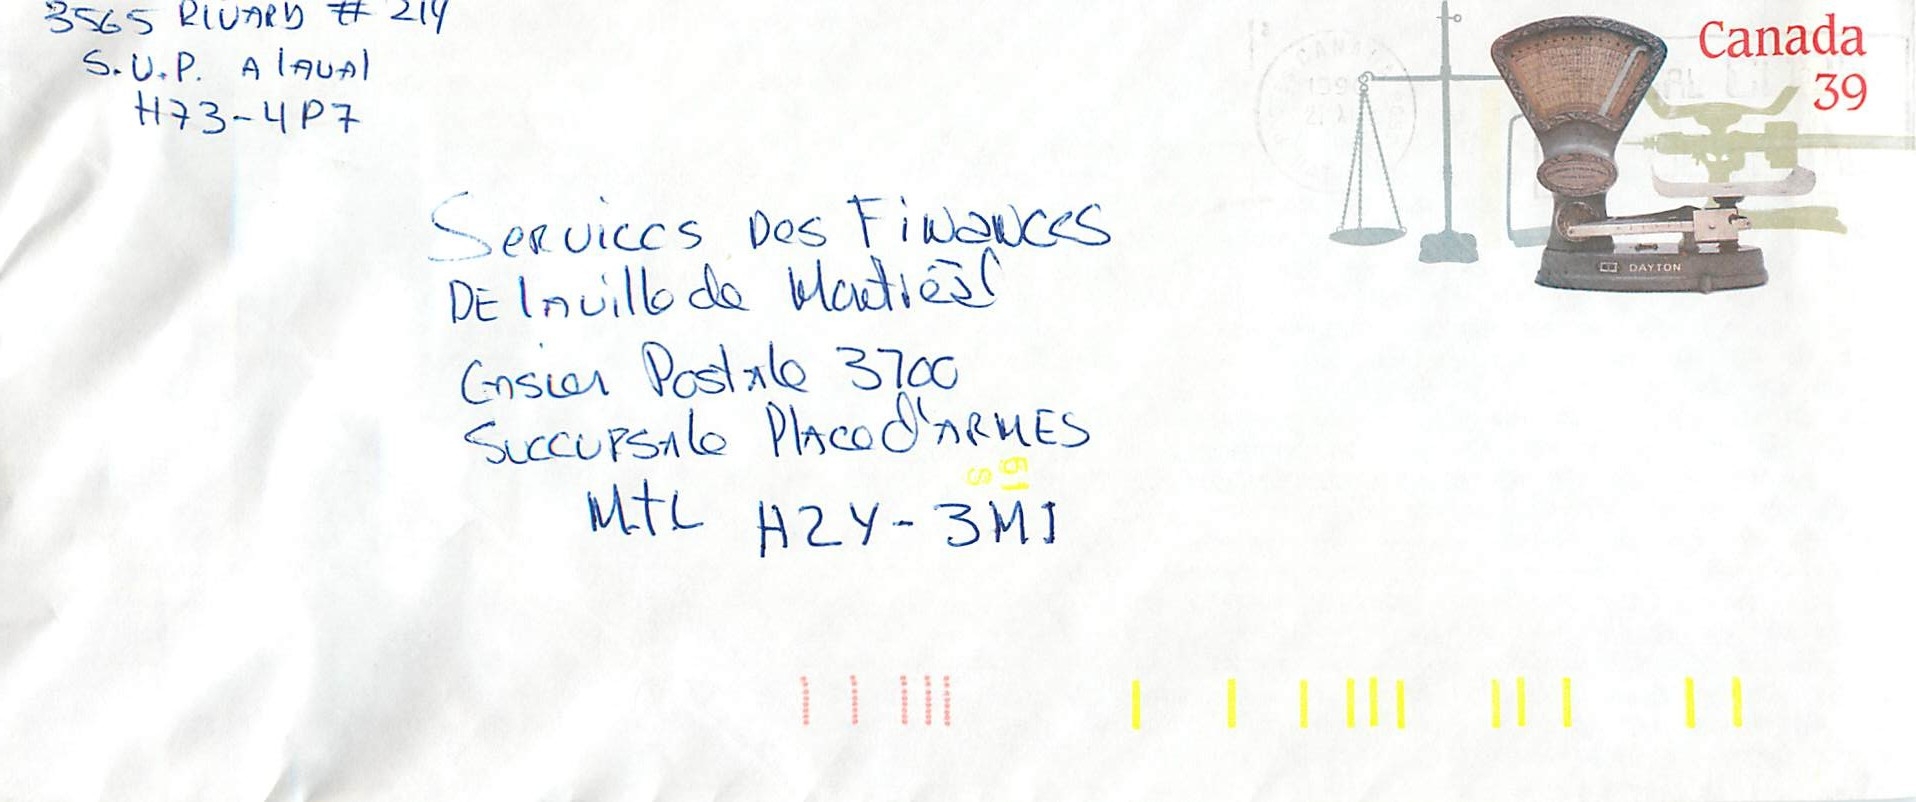 3565 RIVARD # 214
S.V.P. A lAVAl
H73-4P7
Canada
39
1990
Services Des Finances
DE lAville de Montréal
Casier Postale 3700
Succursale Place d'ARMES
MTL H2Y-3M1
DAYTON